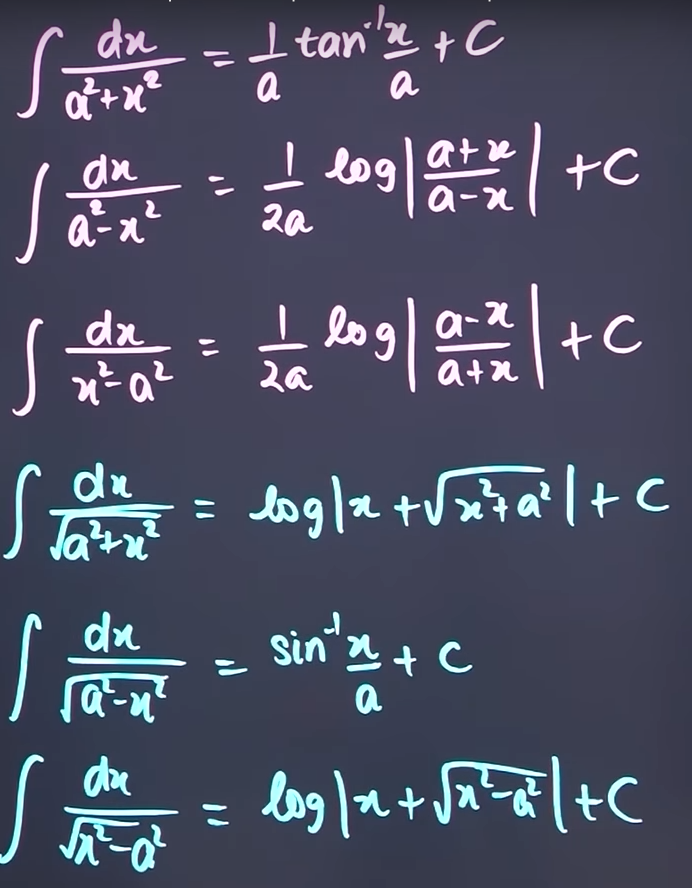 ∫ dx/(a²+x²) = 1/a tan⁻¹ x/a + C
∫ dx/(a²-x²) = 1/2a log|(a+x)/(a-x)| + C
∫ dx/(x²-a²) = 1/2a log|(a-x)/(a+x)| + C
∫ dx/√(a²+x²) = log|x + √(x²+a²)| + C
∫ dx/√(a²-x²) = sin⁻¹ x/a + C
∫ dx/√(x²-a²) = log|x + √(x²-a²)| + C